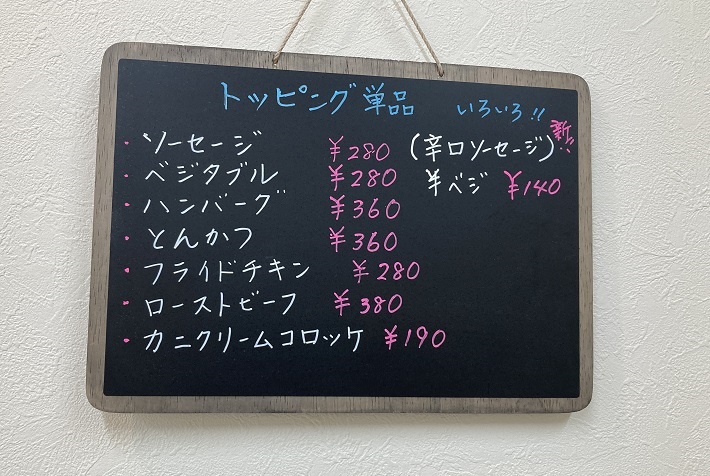 トッピング単品 いろいろ!!
・ソーセージ ¥280 (辛口ソーセージ)
・ベジタブル ¥280 半ベジ ¥140
・ハンバーグ ¥360
・とんかつ ¥360
・フライドチキン ¥280
・ローストビーフ ¥380
・カニクリームコロッケ ¥190